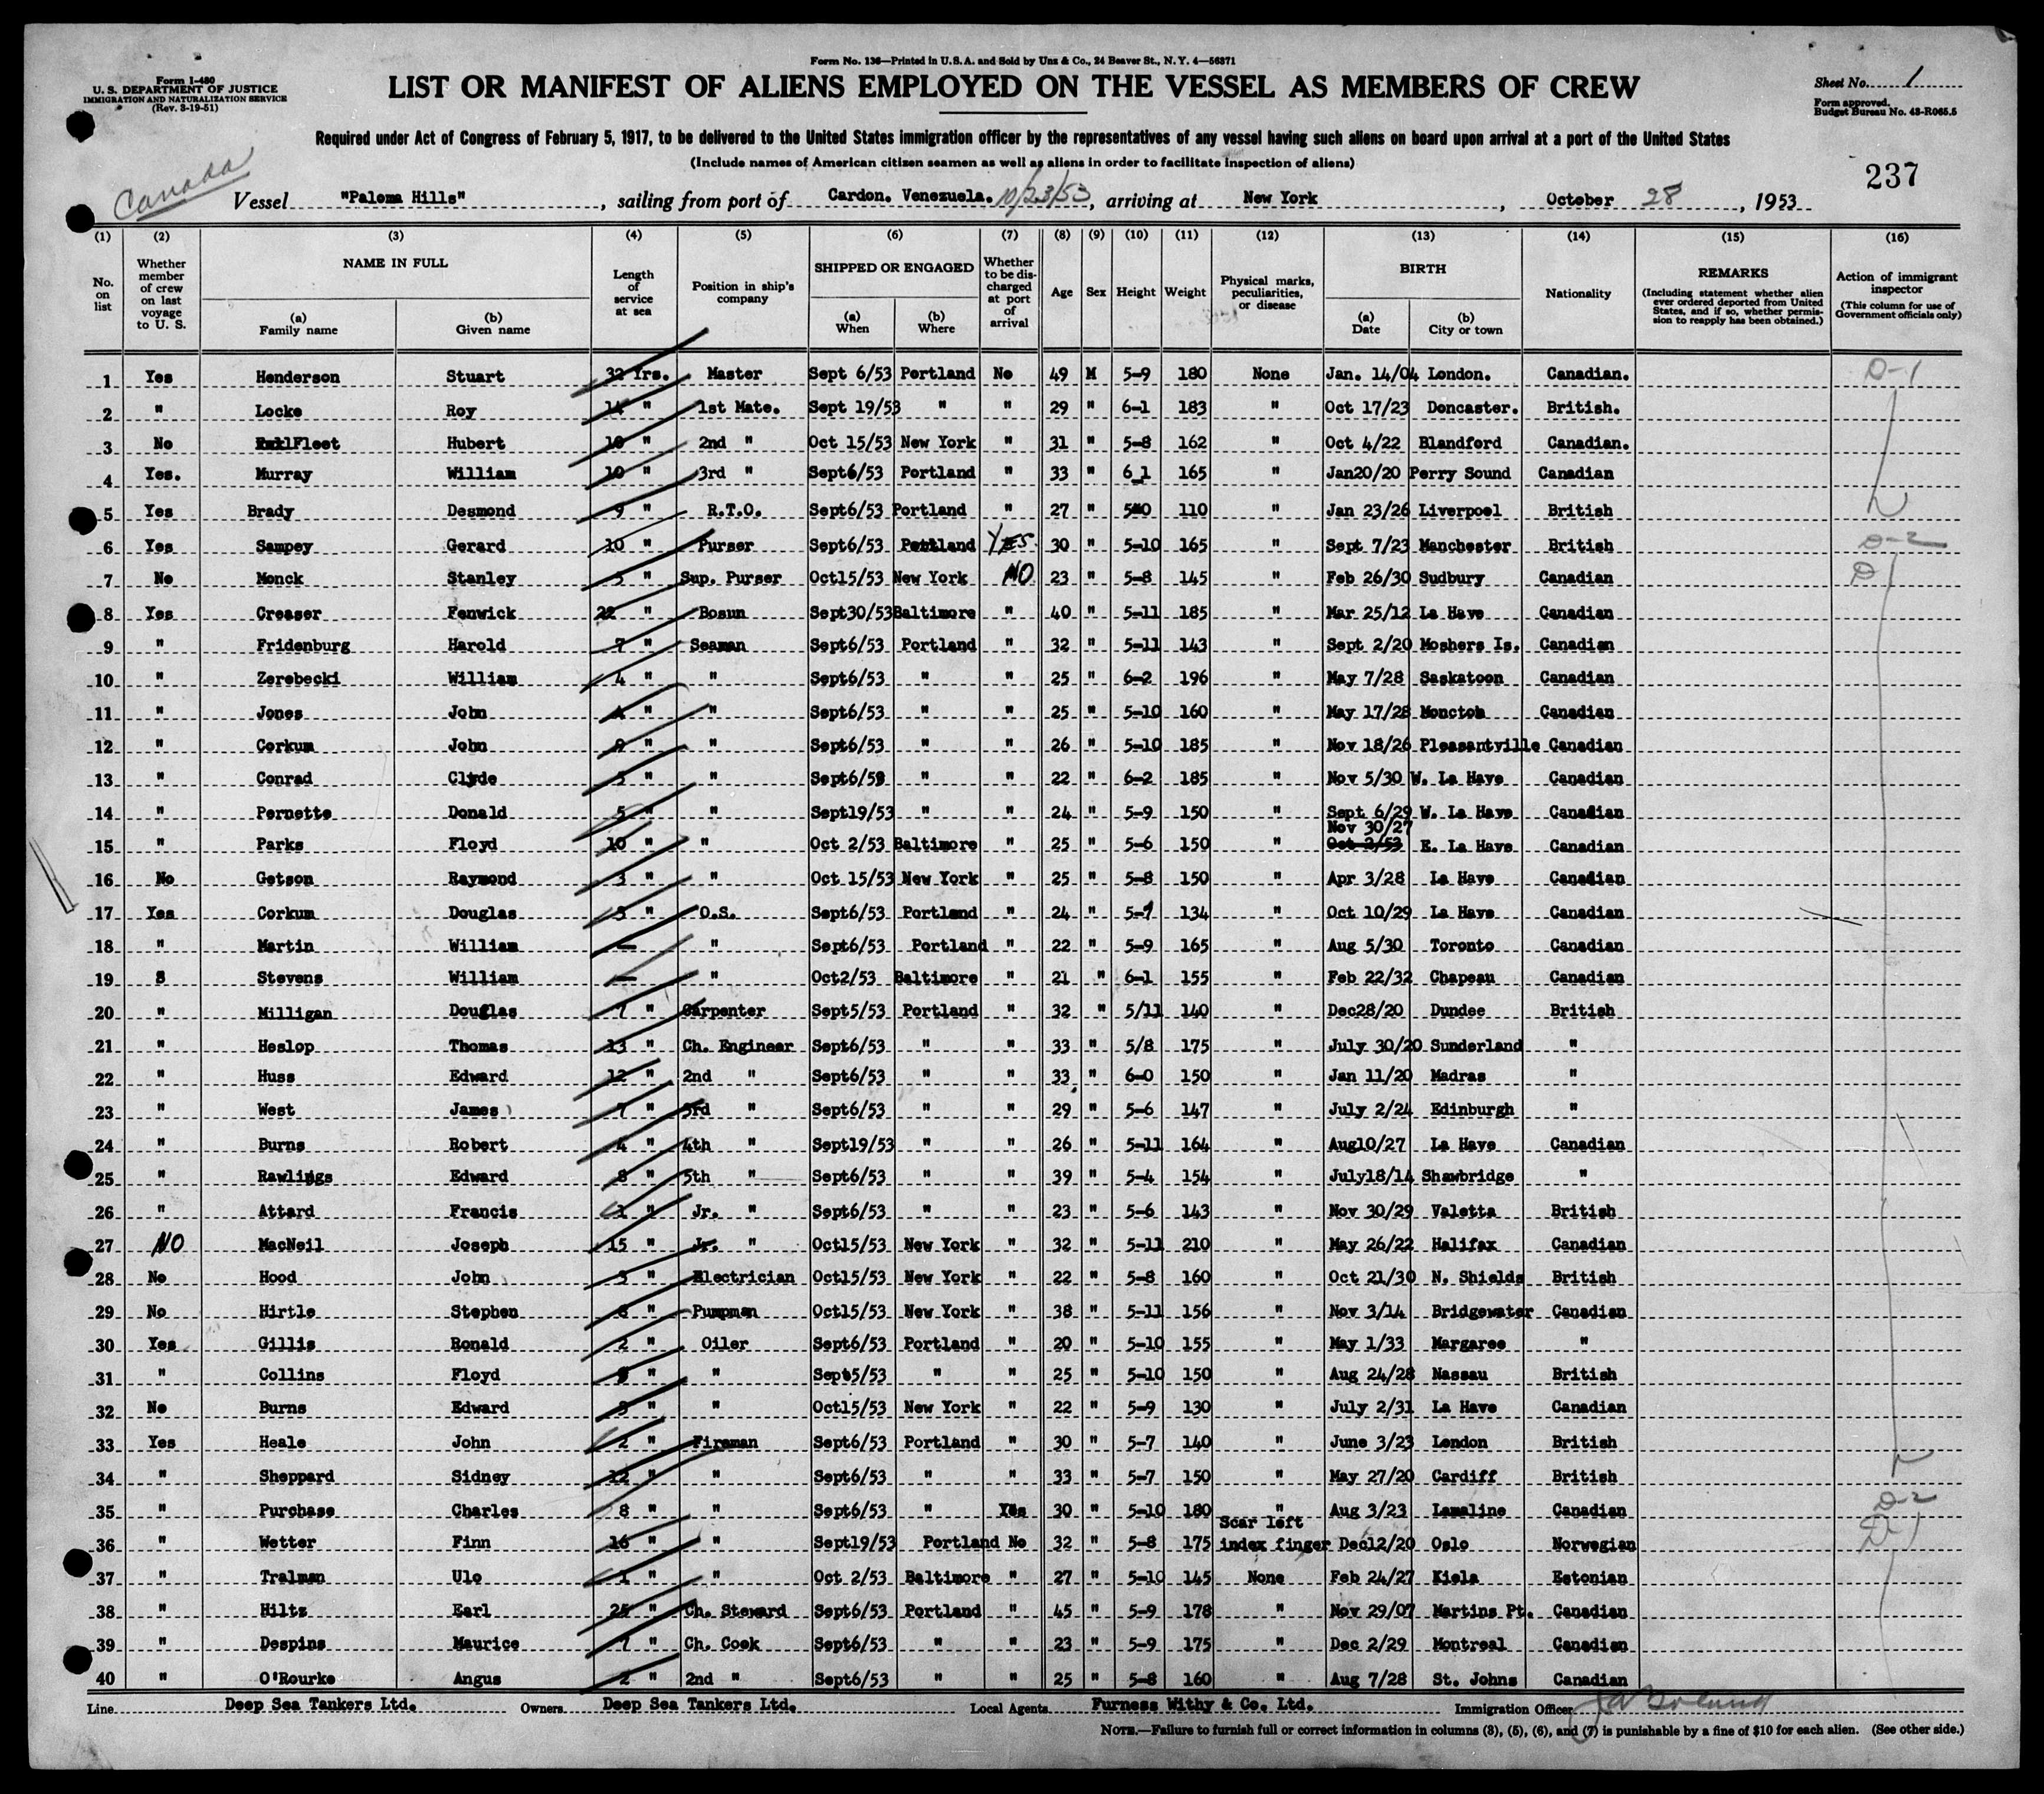 Form No. 136—Printed in U.S.A. and Sold by Unz & Co., 24 Beaver St., N.Y. 4—56371
Form I-480
U. S. DEPARTMENT OF JUSTICE
IMMIGRATION AND NATURALIZATION SERVICE
(Rev. 3-19-51)
LIST OR MANIFEST OF ALIENS EMPLOYED ON THE VESSEL AS MEMBERS OF CREW
Sheet No. 1
Form approved.
Budget Bureau No. 43-R065.5
Required under Act of Congress of February 5, 1917, to be delivered to the United States immigration officer by the representatives of any vessel having such aliens on board upon arrival at a port of the United States
(Include names of American citizen seamen as well as aliens in order to facilitate inspection of aliens)
237
Canada
Vessel "Paloma Hills", sailing from port of Cardon. Venezuela. 10/23/53, arriving at New York, October 28, 1953
(1) (2) (3) (4) (5) (6) (7) (8) (9) (10) (11) (12) (13) (14) (15) (16)
No. on list
Whether member of crew on last voyage to U. S.
NAME IN FULL
(a) Family name
(b) Given name
Length of service at sea
Position in ship's company
SHIPPED OR ENGAGED
(a) When
(b) Where
Whether to be discharged at port of arrival
Age
Sex
Height
Weight
Physical marks, peculiarities, or disease
BIRTH
(a) Date
(b) City or town
Nationality
REMARKS
(Including statement whether alien ever ordered deported from United States, and if so, whether permission to reapply has been obtained.)
Action of immigrant inspector
(This column for use of Government officials only)
1 Yes Henderson Stuart 32 Yrs. Master Sept 6/53 Portland No 49 M 5-9 180 None Jan. 14/04 London. Canadian. D-1
2 " Locke Roy 14 " 1st Mate. Sept 19/53 " " 29 " 6-1 183 " Oct 17/23 Doncaster. British.
3 No Fleet Hubert 10 " 2nd " Oct 15/53 New York " 31 " 5-8 162 " Oct 4/22 Blandford Canadian.
4 Yes. Murray William 10 " 3rd " Sept6/53 Portland " 33 " 6_1 165 " Jan20/20 Perry Sound Canadian
5 Yes Brady Desmond 9 " R.T.O. Sept6/53 Portland " 27 " 110 " Jan 23/26 Liverpool British
6 Yes Sampey Gerard 10 " Purser Sept6/53 Portland Yes. 30 " 5-10 165 " Sept 7/23 Manchester British D-2
7 No Monck Stanley 3 " Sup. Purser Oct15/53 New York NO 23 " 5-8 145 " Feb 26/30 Sudbury Canadian D
8 Yes Creaser Fenwick 22 " Bosun Sept30/53 Baltimore " 40 " 5-11 185 " Mar 25/12 La Have Canadian
9 " Fridenburg Harold 7 " Seaman Sept6/53 Portland " 32 " 5-11 143 " Sept 2/20 Moshers Is. Canadian
10 " Zerebecki William 4 " " Sept6/53 " " 25 " 6-2 196 " May 7/28 Saskatoon Canadian
11 " Jones John 4 " " Sept6/53 " " 25 " 5-10 160 " May 17/28 Moncton Canadian
12 " Corkum John 9 " " Sept6/53 " " 26 " 5-10 185 " Nov 18/26 Pleasantville Canadian
13 " Conrad Clyde 5 " " Sept6/53 " " 22 " 6-2 185 " Nov 5/30 W. La Have Canadian
14 " Pernette Donald 5 " " Sept19/53 " " 24 " 5-9 150 " Sept 6/29 W. La Have Canadian
Nov 30/27
15 " Parks Floyd 10 " " Oct 2/53 Baltimore " 25 " 5-6 150 " Oct 2/53 E. La Have Canadian
16 No Getson Raymond 3 " " Oct 15/53 New York " 25 " 5-8 150 " Apr 3/28 La Have Canadian
17 Yes Corkum Douglas 3 " O.S. Sept6/53 Portland " 24 " 5-7 134 " Oct 10/29 La Have Canadian
18 " Martin William — " Sept6/53 Portland " 22 " 5-9 165 " Aug 5/30 Toronto Canadian
19 Stevens William — " Oct2/53 Baltimore " 21 " 6-1 155 " Feb 22/32 Chapeau Canadian
20 " Milligan Douglas 7 " Carpenter Sept5/53 Portland " 32 " 5/11 140 " Dec28/20 Dundee British
21 " Heslop Thomas 13 " Ch. Engineer Sept6/53 " " 33 " 5/8 175 " July 30/20 Sunderland "
22 " Huss Edward 12 " 2nd " Sept6/53 " " 33 " 6-0 150 " Jan 11/20 Madras "
23 " West James 7 " 3rd " Sept6/53 " " 29 " 5-6 147 " July 2/24 Edinburgh "
24 " Burns Robert 4 " 4th " Sept19/53 " " 26 " 5-11 164 " Aug10/27 La Have Canadian
25 " Rawlings Edward 8 " 5th " Sept6/53 " " 39 " 5-4 154 " July18/14 Shawbridge "
26 " Attard Francis 1 " Jr. " Sept6/53 " " 23 " 5-6 143 " Nov 30/29 Valetta British
27 NO MacNeil Joseph 15 " Jr. " Oct15/53 New York " 32 " 5-11 210 " May 26/22 Halifax Canadian
28 No Hood John 3 " Electrician Oct15/53 New York " 22 " 5-8 160 " Oct 21/30 N. Shields British
29 No Hirtle Stephen 8 " Pumpman Oct15/53 New York " 38 " 5-11 156 " Nov 3/14 Bridgewater Canadian
30 Yes Gillis Ronald 2 " Oiler Sept6/53 Portland " 20 " 5-10 155 " May 1/33 Margaree "
31 " Collins Floyd " " Sept5/53 " " 25 " 5-10 150 " Aug 24/28 Nassau British
32 No Burns Edward 3 " " Oct15/53 New York " 22 " 5-9 130 " July 2/31 La Have Canadian
33 Yes Heale John 2 " Fireman Sept6/53 Portland " 30 " 5-7 140 " June 3/23 London British
34 " Sheppard Sidney 12 " " Sept6/53 " " 33 " 5-7 150 " May 27/20 Cardiff British
35 " Purchase Charles 8 " " Sept6/53 " Yes 30 " 5-10 180 " Aug 3/23 Lamaline Canadian D-2
Scar left
36 " Wetter Finn 16 " " Sept19/53 Portland No 32 " 5-8 175 index finger Dec12/20 Oslo Norwegian D-1
37 " Tralman Ulo 1 " " Oct 2/53 Baltimore " 27 " 5-10 145 None Feb 24/27 Kiela Estonian
38 " Hiltz Earl 25 " Ch. Steward Sept6/53 Portland " 45 " 5-9 178 " Nov 29/07 Martins Pt. Canadian
39 " Despins Maurice 7 " Ch. Cook Sept6/53 " " 23 " 5-9 175 " Dec 2/29 Montreal Canadian
40 " O'Rourke Angus 2 " 2nd " Sept6/53 " " 25 " 5-8 160 " Aug 7/28 St. Johns Canadian
Line Deep Sea Tankers Ltd. Owners Deep Sea Tankers Ltd. Local Agents Furness Withy & Co. Ltd. Immigration Officer
NOTE.—Failure to furnish full or correct information in columns (3), (5), (6), and (7) is punishable by a fine of $10 for each alien. (See other side.)